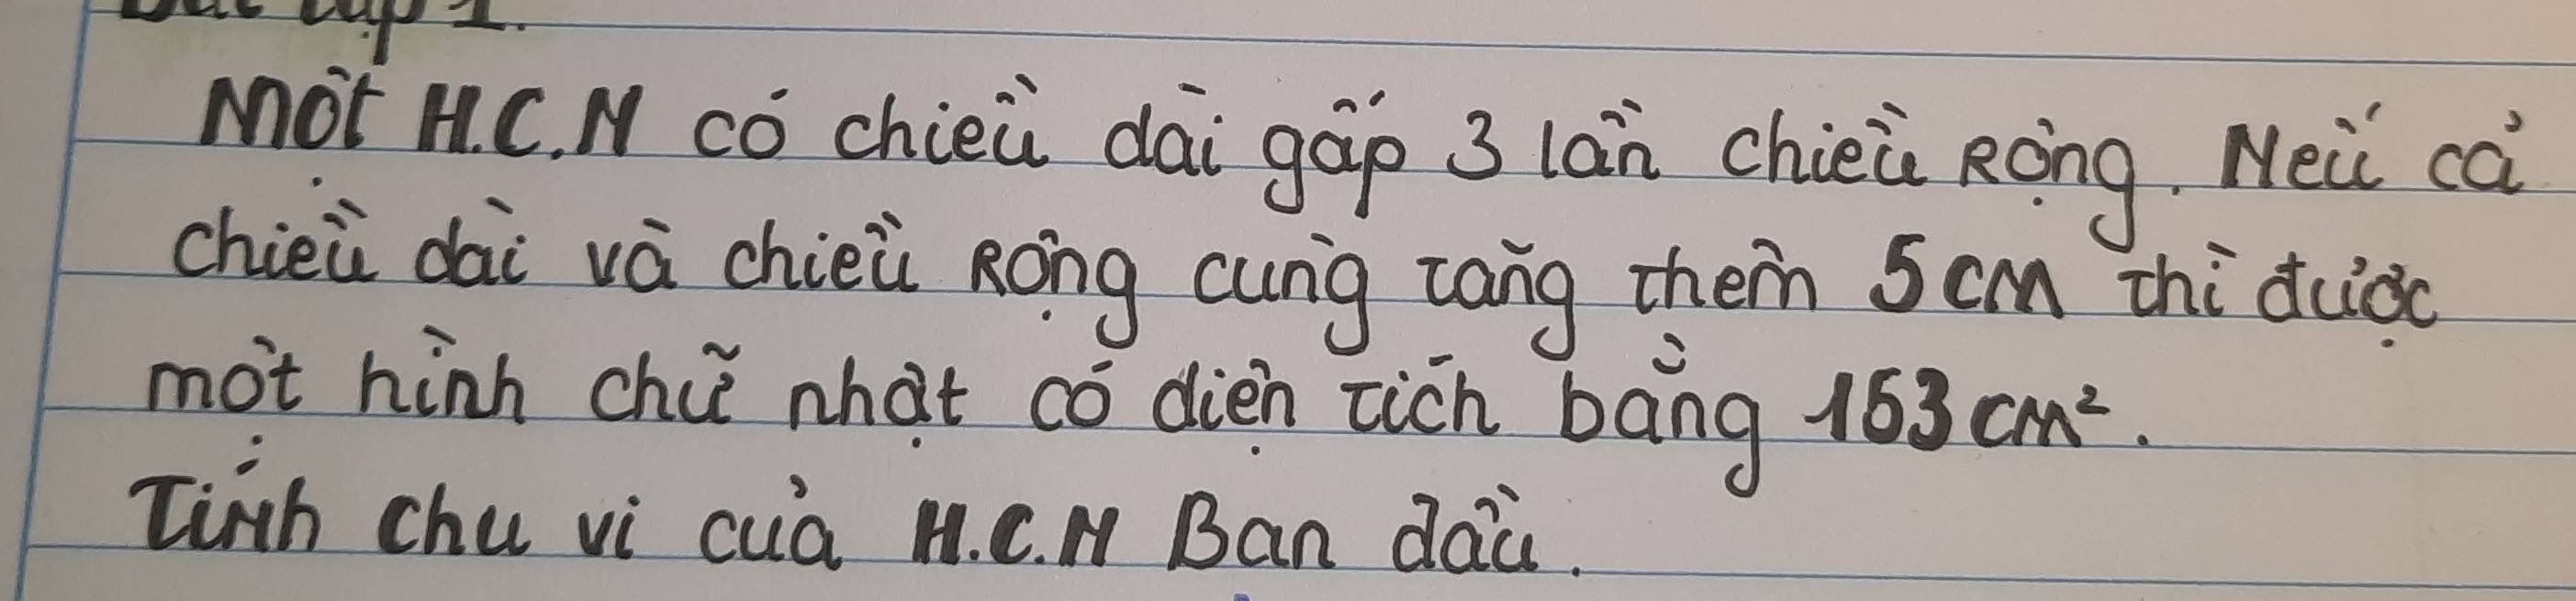 Bài tập 1.
Một H.C.N có chiều dài gấp 3 lần chiều Rộng. Nếu cả
chiều dài và chiều Rộng cùng tăng thêm 5cm thì được
một hình chữ nhật có diện tích bằng 153cm².
Tính chu vi của H.C.N Ban đầu.